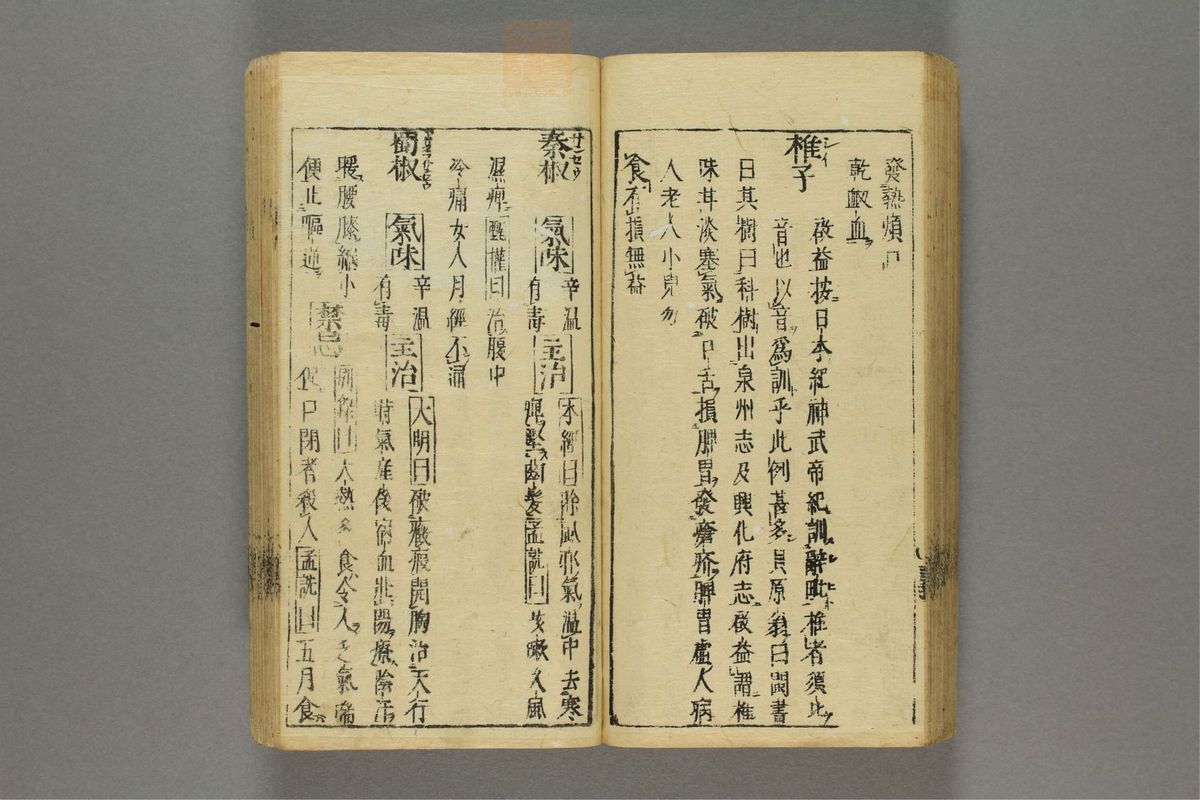 發熱煩口
乾衂血
椎子
シイ
啟益按日本紀神武帝紀訓辭此椎者須此
音也以音爲訓乎此例甚多貝原翁曰閩書
曰其樹曰科樹出泉州志及興化府志啟益謂椎
味甘淡塞氣破口舌損脾胃發瘡疥脾胃虛人病
人老人小兒勿
食有損無益
秦椒 氣味 辛温有毒 主治 本經曰除風邪氣温中去寒
痺堅齒髮孟詵曰欬嗽久風
濕痺甄權曰治腹中
冷痛女人月經不通
蜀椒 氣味 辛温有毒 主治 大明曰破癥瘕開胸治天行
時氣産後宿血壯陽療陰汗
暖腰膝縮小
便止嘔逆
禁忌 大熱多食令人乏氣喘
促口閉者殺人孟詵曰五月食